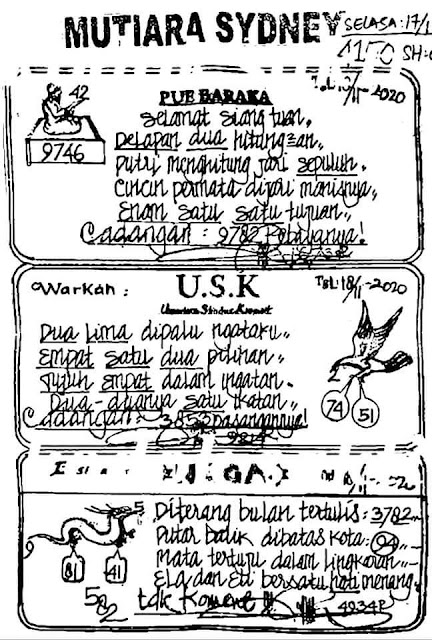 MUTIARA SYDNEY
SELASA: 17/1
4150 SH:
TGL 17/11-2020
42
9746
PUE BARAKA
Selamat siang tuan,,
Delapan dua hitungan,,
Putri menghitung jari sepuluh.
Cincin permata dijari manisnya,,
Enam satu satu tujuan,,
Cadangan: 9782 Kebalikannya!
Warkah:
U.S.K
TGL 18/11-2020
Dua Lima dipalu ngataku,,
Empat satu dua pilihan,,
Tujuh empat dalam ingatan.
Dua-duanya satu ikatan,,
Cadangan: 3853 pasangannya!
74
51
Diterang bulan tertulis: 3782,,
Putar balik dibatas kota: 94
Mata tertuju dalam lingkaran
Ela dan Eti bersatu hati menang.
tdk Koment!!
4934P
5
81
41
582